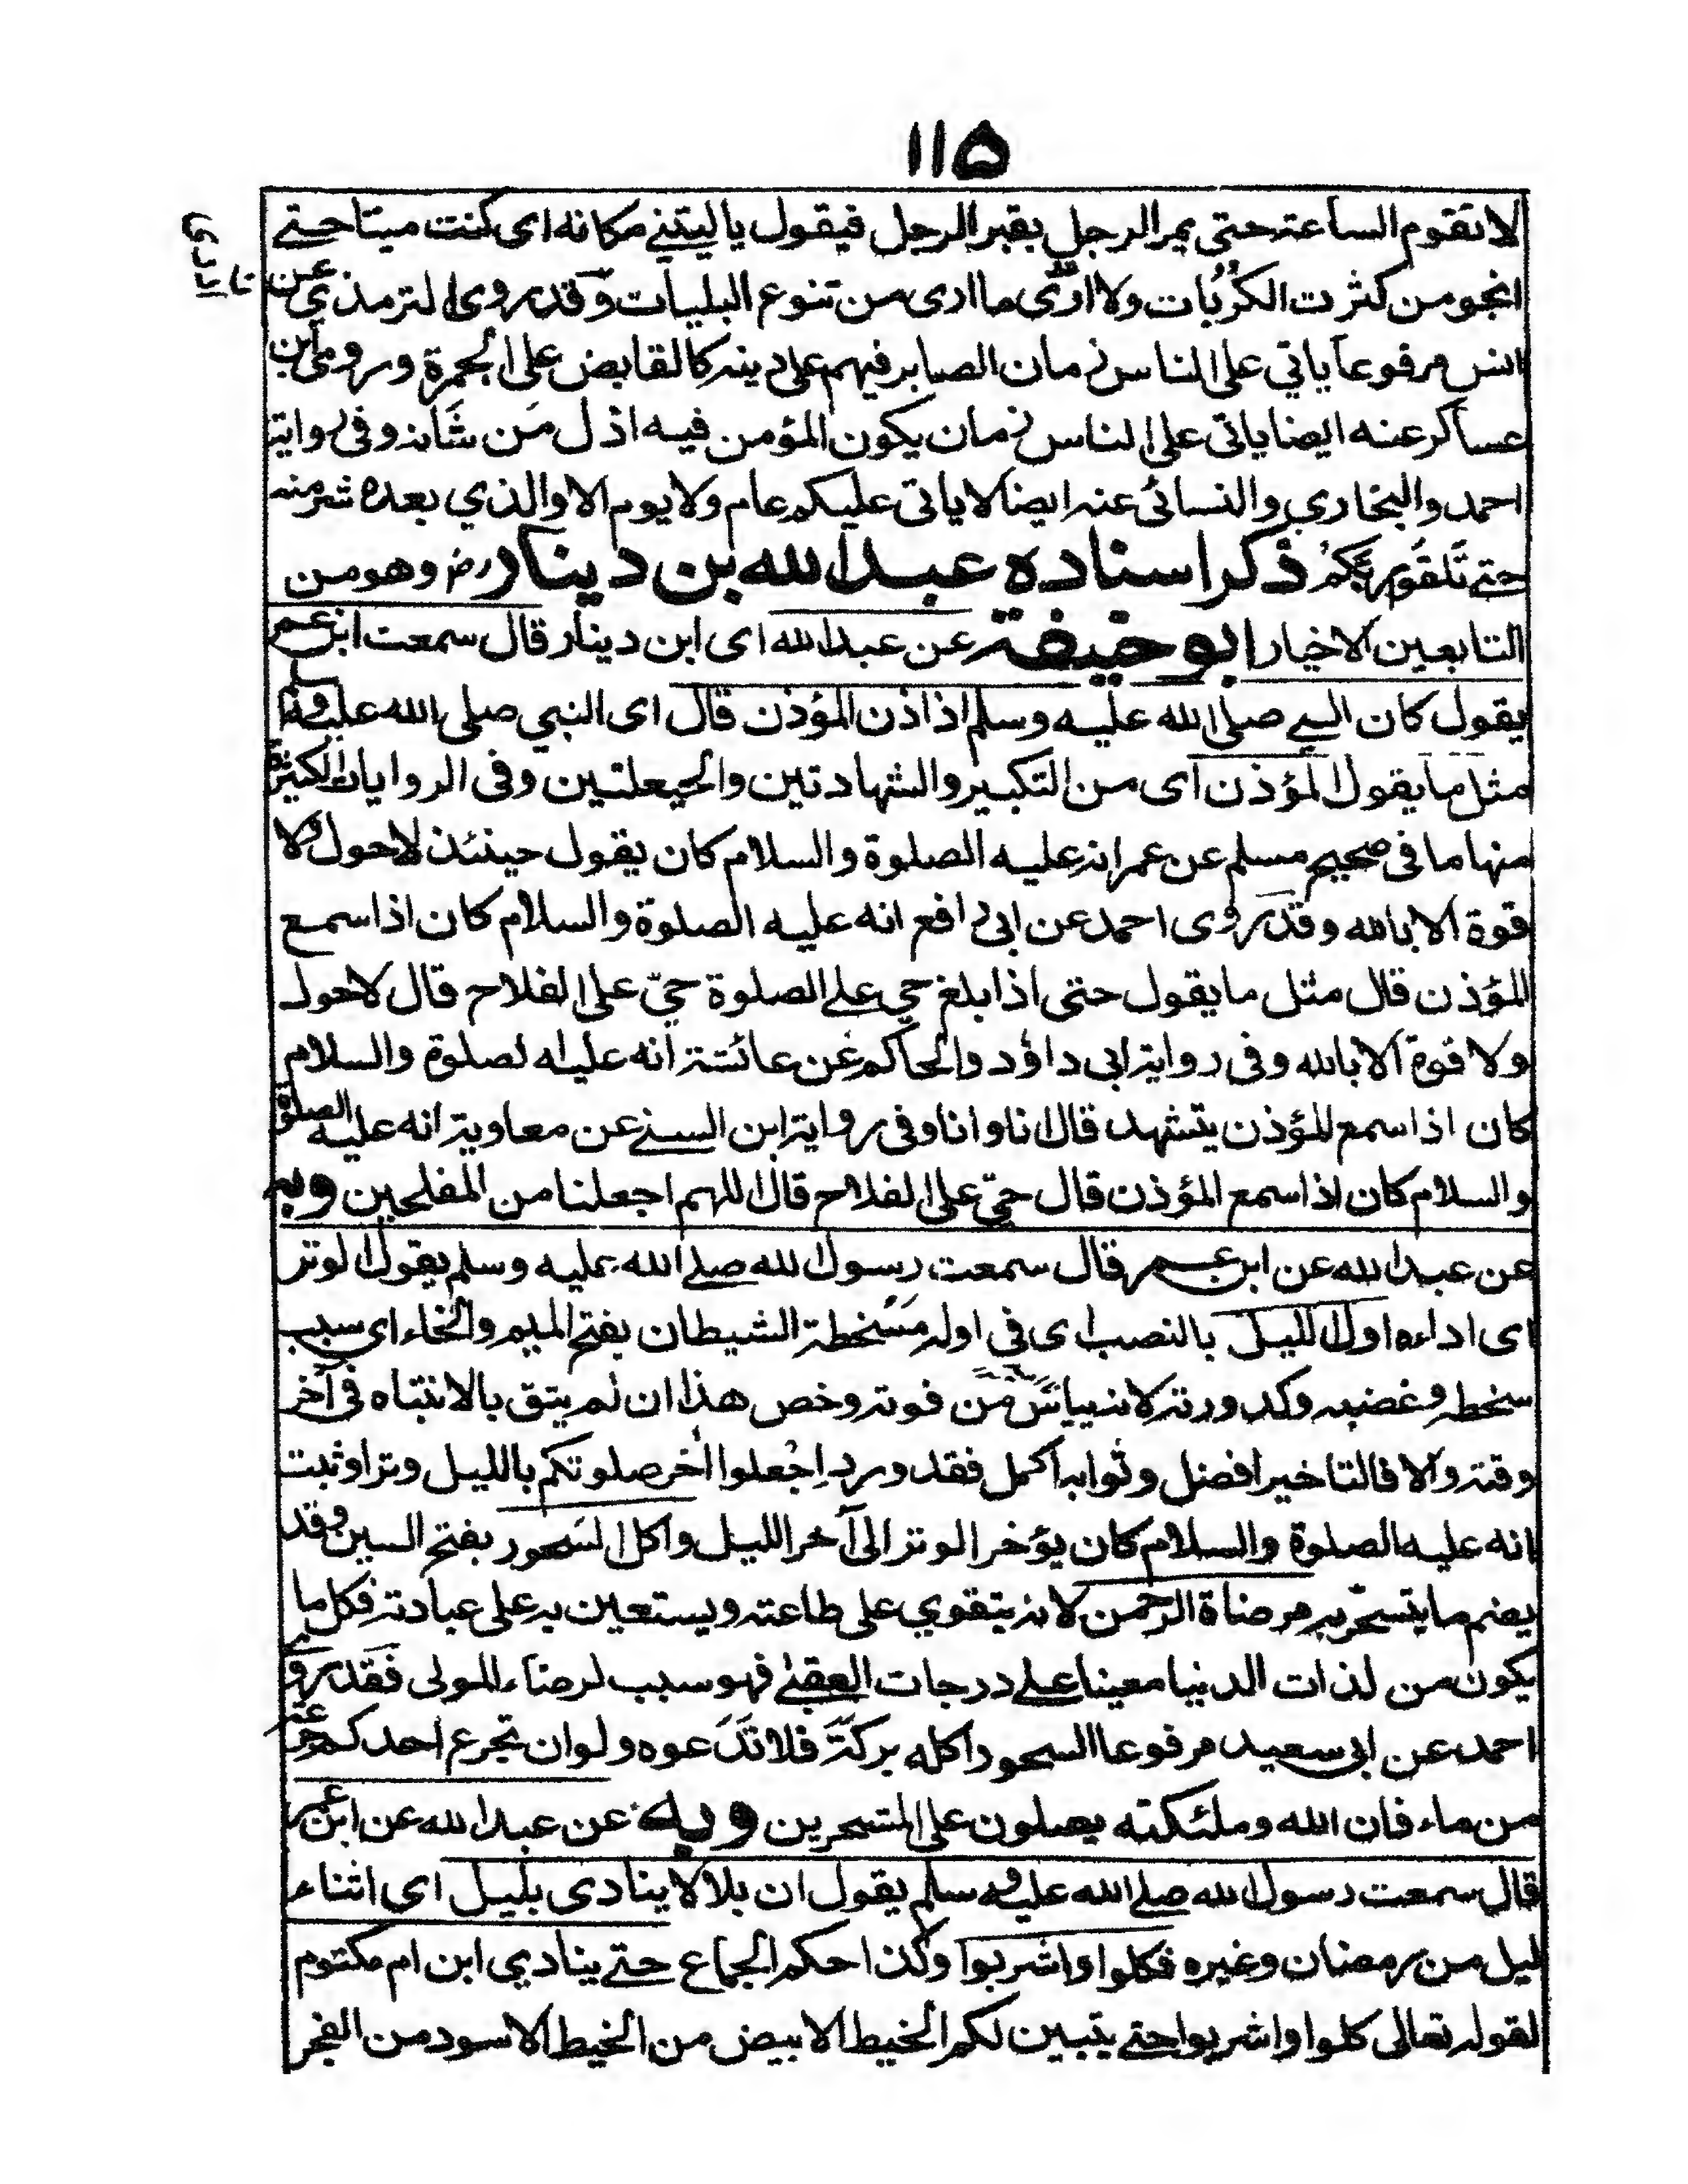 ١١٥
لا تقوم الساعة حتى يمر الرجل بقبر الرجل فيقول يا ليتني مكانه اى كنت ميتا حتے
انجو من كثرت الكرُبات ولا ارى ما ارى من تنوع البليات وقد روى الترمذي عن
انس مرفوعا ياتي على الناس زمان الصابر فيهم على دينه كالقابض على الجمرة وروى ابن
عساكر عنه ايضا ياتى على الناس زمان يكون المؤمن فيه اذل من شاته وفى رواية
احمد والبخاري والنسائى عنه ايضا لا ياتى عليكم عام ولا يوم الا والذي بعده شر منه
حتے تلقو ربكم ذكر اسناده عبد الله بن دينار رض وهو من
التابعين الاخيار ابو حنيفة عن عبد الله اى ابن دينار قال سمعت ابن عمر
يقول كان النبے صلى الله عليه وسلم اذا اذن المؤذن قال اى النبي صلى الله عليه وسلم
مثل ما يقول المؤذن اى من التكبير والشهادتين والحيعلتين وفى الروايات الكثيرة
منها ما فى صحيح مسلم عن عمر انه عليه الصلوة والسلام كان يقول حينئذ لا حول ولا
قوة الا بالله وقد روى احمد عن ابى رافع انه عليه الصلوة والسلام كان اذا سمع
المؤذن قال مثل ما يقول حتى اذا بلغ حي علے الصلوة حيّ على الفلاح قال لا حول
ولا قوة الا بالله وفى رواية ابى داؤد والحاكم عن عائشة انه عليه الصلوة والسلام
كان اذا سمع المؤذن يتشهد قال انا وانا وفى رواية ابن السنے عن معاوية انه عليه الصلوة
والسلام كان اذا سمع المؤذن قال حيّ على الفلاح قال اللهم اجعلنا من المفلحين وبه
عن عبد الله عن ابن عمر قال سمعت رسول الله صلے الله عليه وسلم يقول الوتر
اى اداءه اول الليل بالنصب اى فى اوله مَسْخطة الشيطان بفتح الميم والخاء اى سبب
سخطه وغضبه وكدورته لانه يياس من فوته وخص هذا ان لم يثق بالانتباه فى آخر
وقته والا فالتاخير افضل وثوابه اكمل فقد ورد اجعلوا اخر صلوتكم بالليل وترا وثبت
انه عليه الصلوة والسلام كان يؤخر الوتر الى آخر الليل واكل السَحور بفتح السين وقد
يضم ما يتسحّر به مرضاة الرحمن لانه يتقوي على طاعته ويستعين به على عبادته فكل ما
يكون من لذات الدنيا معينا علے درجات العقبٰے فهو سبب لرضاء المولى فقد روى
احمد عن ابى سعيد مرفوعا السحور اكله بركة فلا تدعوه ولو ان تجرع احدكم جرعة
من ماء فان الله وملئكته يصلون على المتسحرين وبه عن عبد الله عن ابن عمر
قال سمعت رسول الله صلے الله عليه وسلم يقول ان بلالا ينادى بليل اى اثناء
ليل من رمضان وغيره فكلوا واشربوا وكذا حكم الجماع حتے ينادي ابن ام مكتوم
لقوله تعالى كلوا واشربوا حتے يتبين لكم الخيط الابيض من الخيط الاسود من الفجر